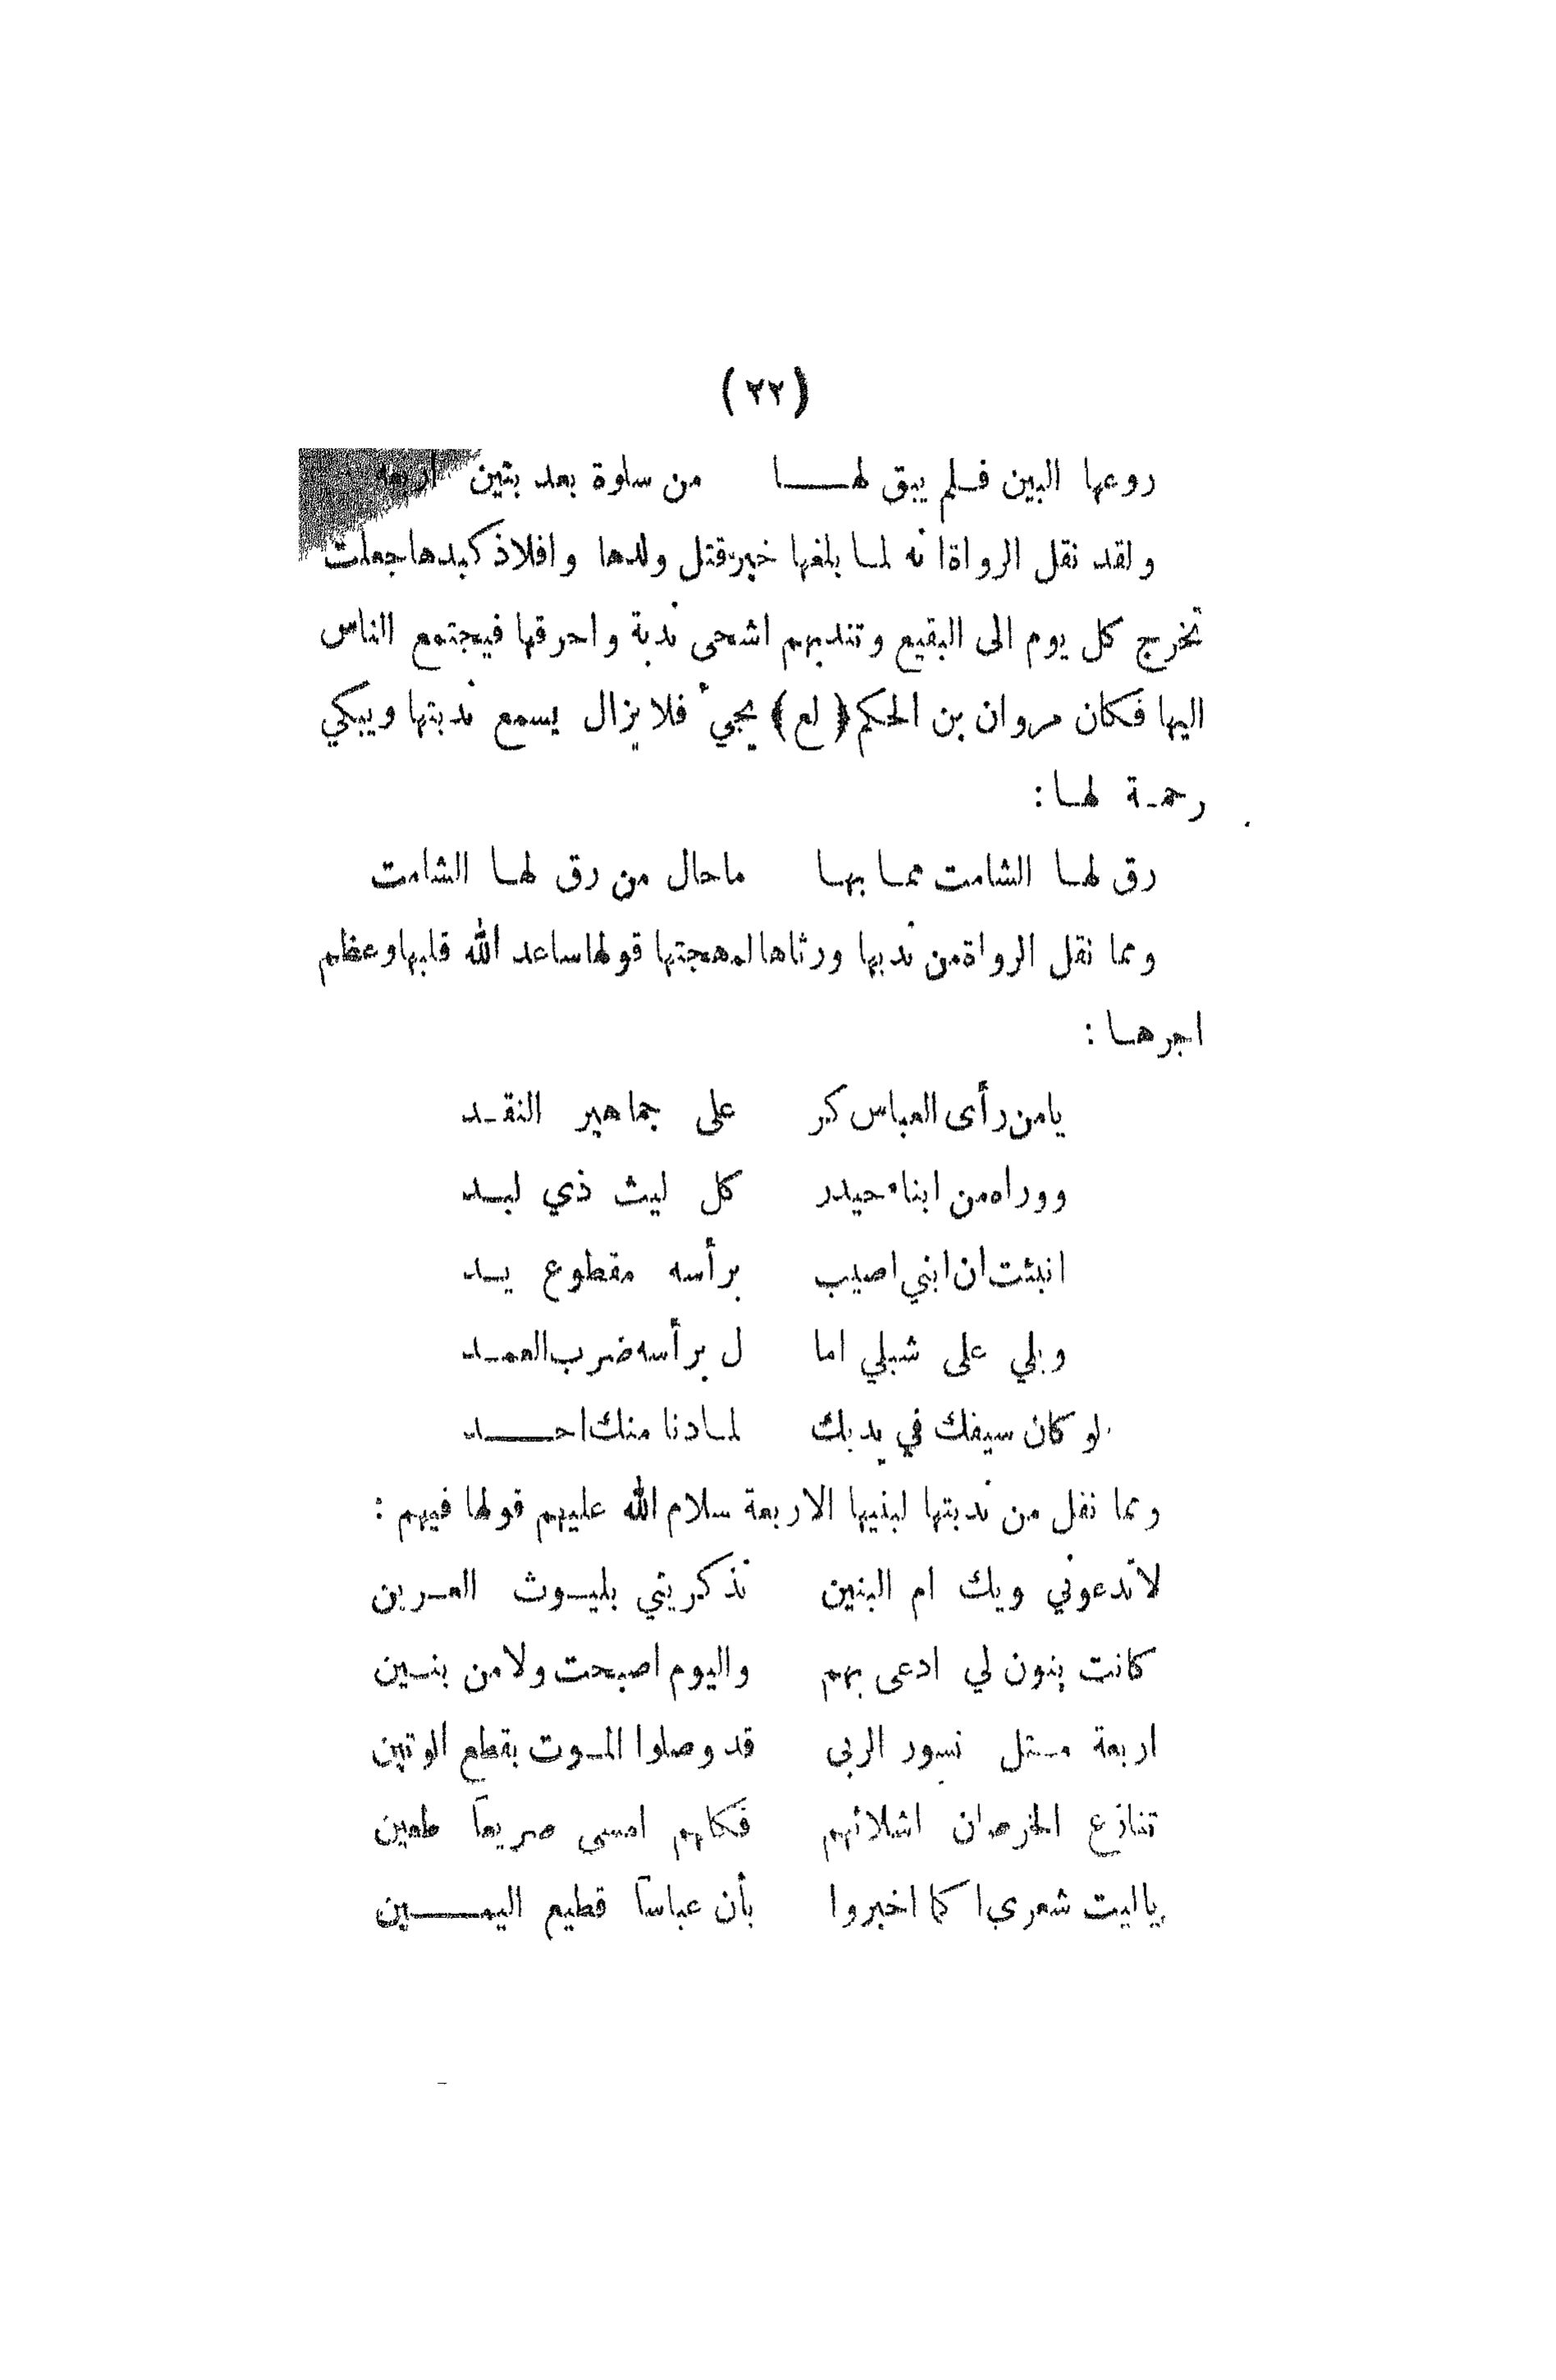 (٢٢)
روعها البين فلم يبق لها من سلوة بعد بنين اربعه
ولقد نقل الرواة انه لما بلغها خبر قتل ولدها وافلاذ كبدها جعلت
تخرج كل يوم الى البقيع وتندبهم اشجى ندبة واحرقها فيجتمع الناس
اليها فكان مروان بن الحكم (لع) يجيء فلا يزال يسمع ندبتها ويبكي
رحمة لها :
رق لها الشامت مما بها ما حال من رق لها الشامت
ومما نقل الرواة من ندبها ورثاها لمهجتها قولها ساعد الله قلبها وعظم
اجرها :
يا من رأى العباس كر على جماهير النقد
ووراه من ابناء حيدر كل ليث ذي لبد
انبئت ان ابني اصيب برأسه مقطوع يد
ويلي على شبلي اما ل برأسه ضرب العمد
لو كان سيفك في يديك لما دنا منك احد
ومما نقل من ندبتها لبنيها الاربعة سلام الله عليهم قولها فيهم :
لا تدعوني ويك ام البنين تذكريني بليوث العرين
كانت بنون لي ادعى بهم واليوم اصبحت ولا من بنين
اربعة مثل نسور الربى قد وصلوا الموت بقطع الوتين
تنازع الخرصان اشلائهم فكلهم امسى صريعاً طعين
يا ليت شعري اكما اخبروا بأن عباساً قطيع اليمين